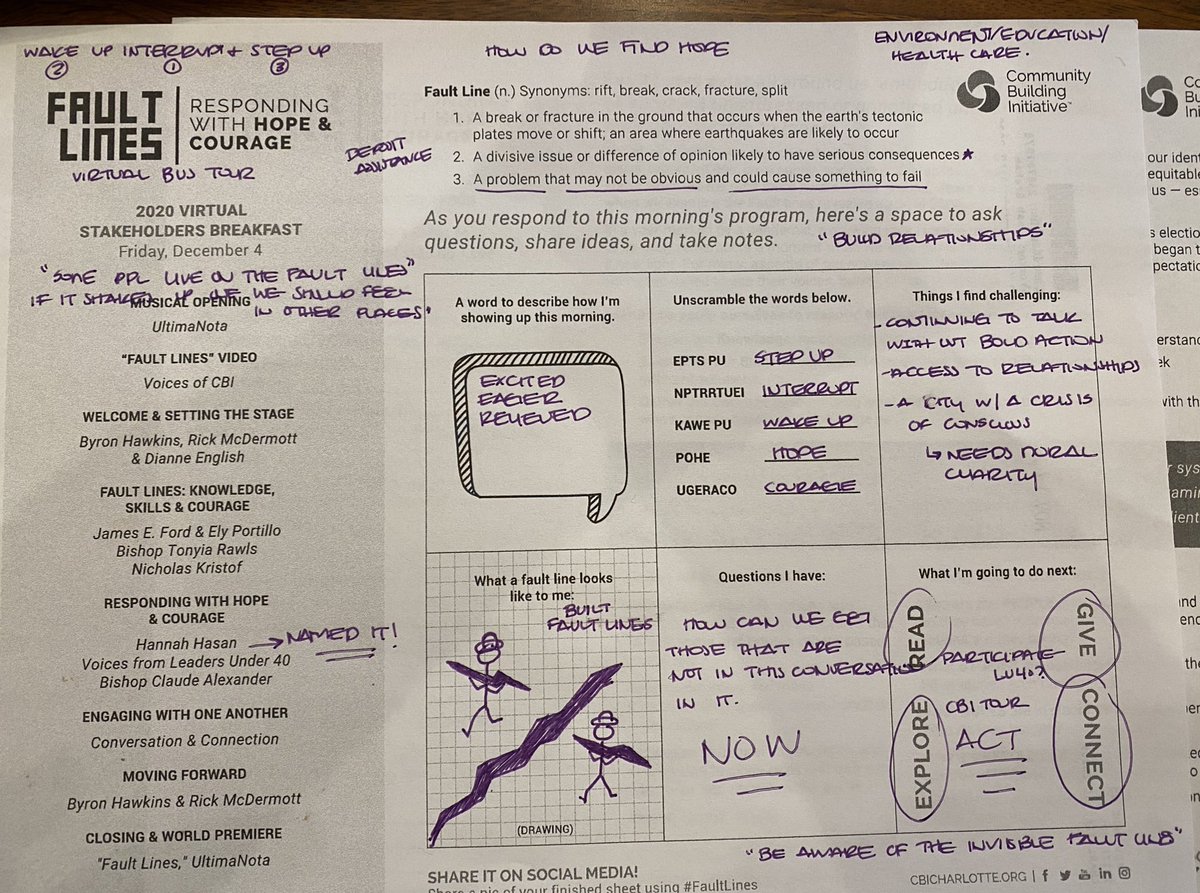 WAKE UP INTERRUPT + STEP UP
② ① ③
HOW DO WE FIND HOPE
ENVIRONMENT/EDUCATION/
HEALTH CARE.
FAULT
LINES
RESPONDING
WITH HOPE &
COURAGE
VIRTUAL BUS TOUR
2020 VIRTUAL
STAKEHOLDERS BREAKFAST
Friday, December 4
"SOME PPL LIVE ON THE FAULT LINES"
IF IT SHAKES UP WE SHOULD FEEL
IN OTHER PLACES"
MUSICAL OPENING
UltimaNota
"FAULT LINES" VIDEO
Voices of CBI
WELCOME & SETTING THE STAGE
Byron Hawkins, Rick McDermott
& Dianne English
FAULT LINES: KNOWLEDGE,
SKILLS & COURAGE
James E. Ford & Ely Portillo
Bishop Tonyia Rawls
Nicholas Kristof
RESPONDING WITH HOPE
& COURAGE
Hannah Hasan → NAMED IT!
Voices from Leaders Under 40
Bishop Claude Alexander
ENGAGING WITH ONE ANOTHER
Conversation & Connection
MOVING FORWARD
Byron Hawkins & Rick McDermott
CLOSING & WORLD PREMIERE
"Fault Lines," UltimaNota
Community
Building
Initiative™
Fault Line (n.) Synonyms: rift, break, crack, fracture, split
1. A break or fracture in the ground that occurs when the earth's tectonic
plates move or shift; an area where earthquakes are likely to occur
2. A divisive issue or difference of opinion likely to have serious consequences★
3. A problem that may not be obvious and could cause something to fail
As you respond to this morning's program, here's a space to ask
questions, share ideas, and take notes.
"BUILD RELATIONSHIPS"
A word to describe how I'm
showing up this morning.
EXCITED
EAGER
RELIEVED
Unscramble the words below.
EPTS PU STEP UP
NPTRRTUEI INTERRUPT
KAWE PU WAKE UP
POHE HOPE
UGERACO COURAGE
Things I find challenging:
- CONTINUING TO TALK
WITHOUT BOLD ACTION
- ACCESS TO RELATIONSHIPS
- A CITY W/ A CRISIS
OF CONSCIOUS
↳ NEEDS MORAL
What a fault line looks
like to me:
BUILT
FAULT LINES
(DRAWING)
Questions I have:
HOW CAN WE GET
THOSE THAT ARE
NOT IN THIS CONVERSATION
IN IT.
NOW
What I'm going to do next:
READ
GIVE
EXPLORE
CONNECT
PARTICIPATE
LU40?
CBI TOUR
ACT
"BE AWARE OF THE INVISIBLE FAULT LINES"
SHARE IT ON SOCIAL MEDIA!
Share a pic of your finished sheet using #FaultLines
CBICHARLOTTE.ORG |